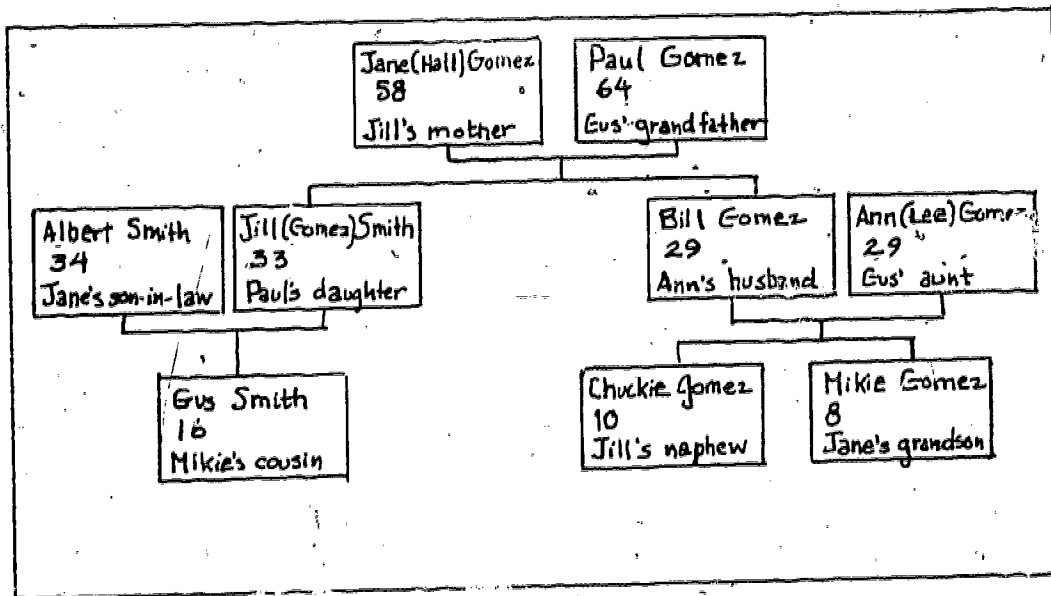 Jane(Hall)Gomez
58
Jill's mother
Paul Gomez
64
Gus' grandfather
Albert Smith
34
Jane's son-in-law
Jill(Gomez)Smith
33
Paul's daughter
Bill Gomez
29
Ann's husband
Ann(Lee)Gomez
29
Gus' aunt
Gus Smith
16
Mikie's cousin
Chuckie Gomez
10
Jill's naphew
Mikie Gomez
8
Jane's grandson